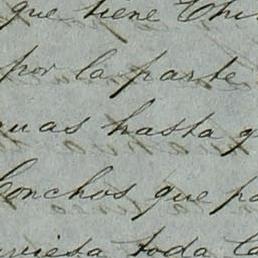 que tiene Chi
por la parte
uas hasta q
Conchos que pa
viesa toda la